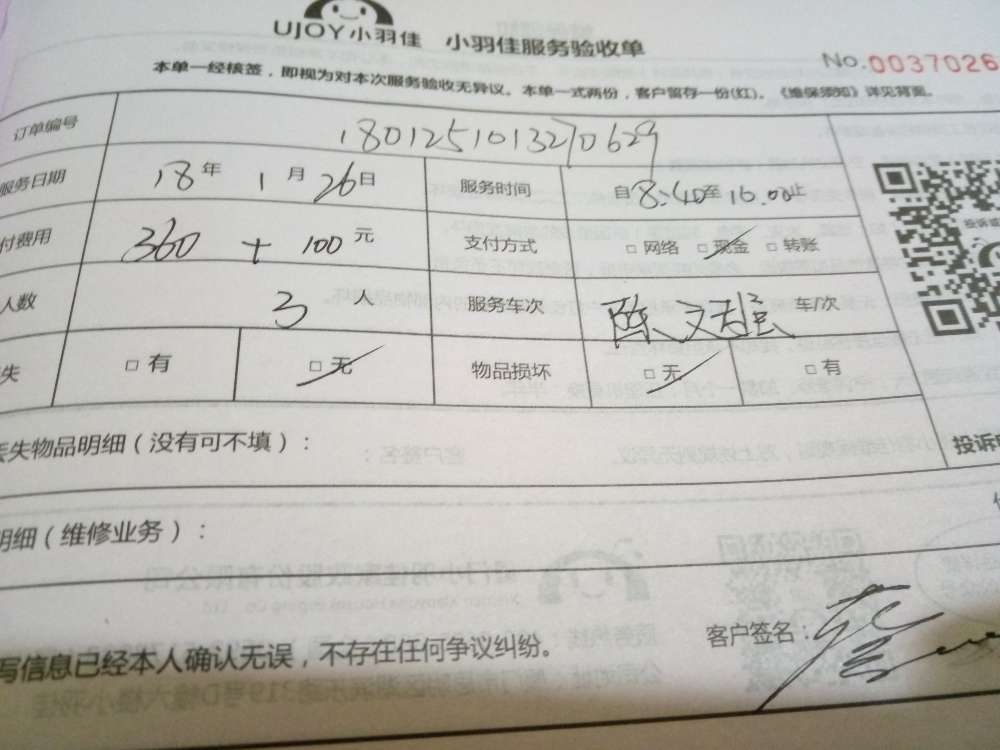 UJOY小羽佳 小羽佳服务验收单
No.0037026
本单一经核签，即视为对本次服务验收无异议。本单一式两份，客户留存一份(红)。《维保须知》详见背面。
订单编号 1801251013270629
服务日期 18年 1月 26日 服务时间 自8:40至16.00止
付费用 360 + 100元 支付方式 □网络 □现金 □转账
人数 3 人 服务车次 车/次
失 □有 □无 物品损坏 □无 □有
丢失物品明细（没有可不填）：
投诉
明细（维修业务）：
写信息已经本人确认无误，不存在任何争议纠纷。
客户签名：